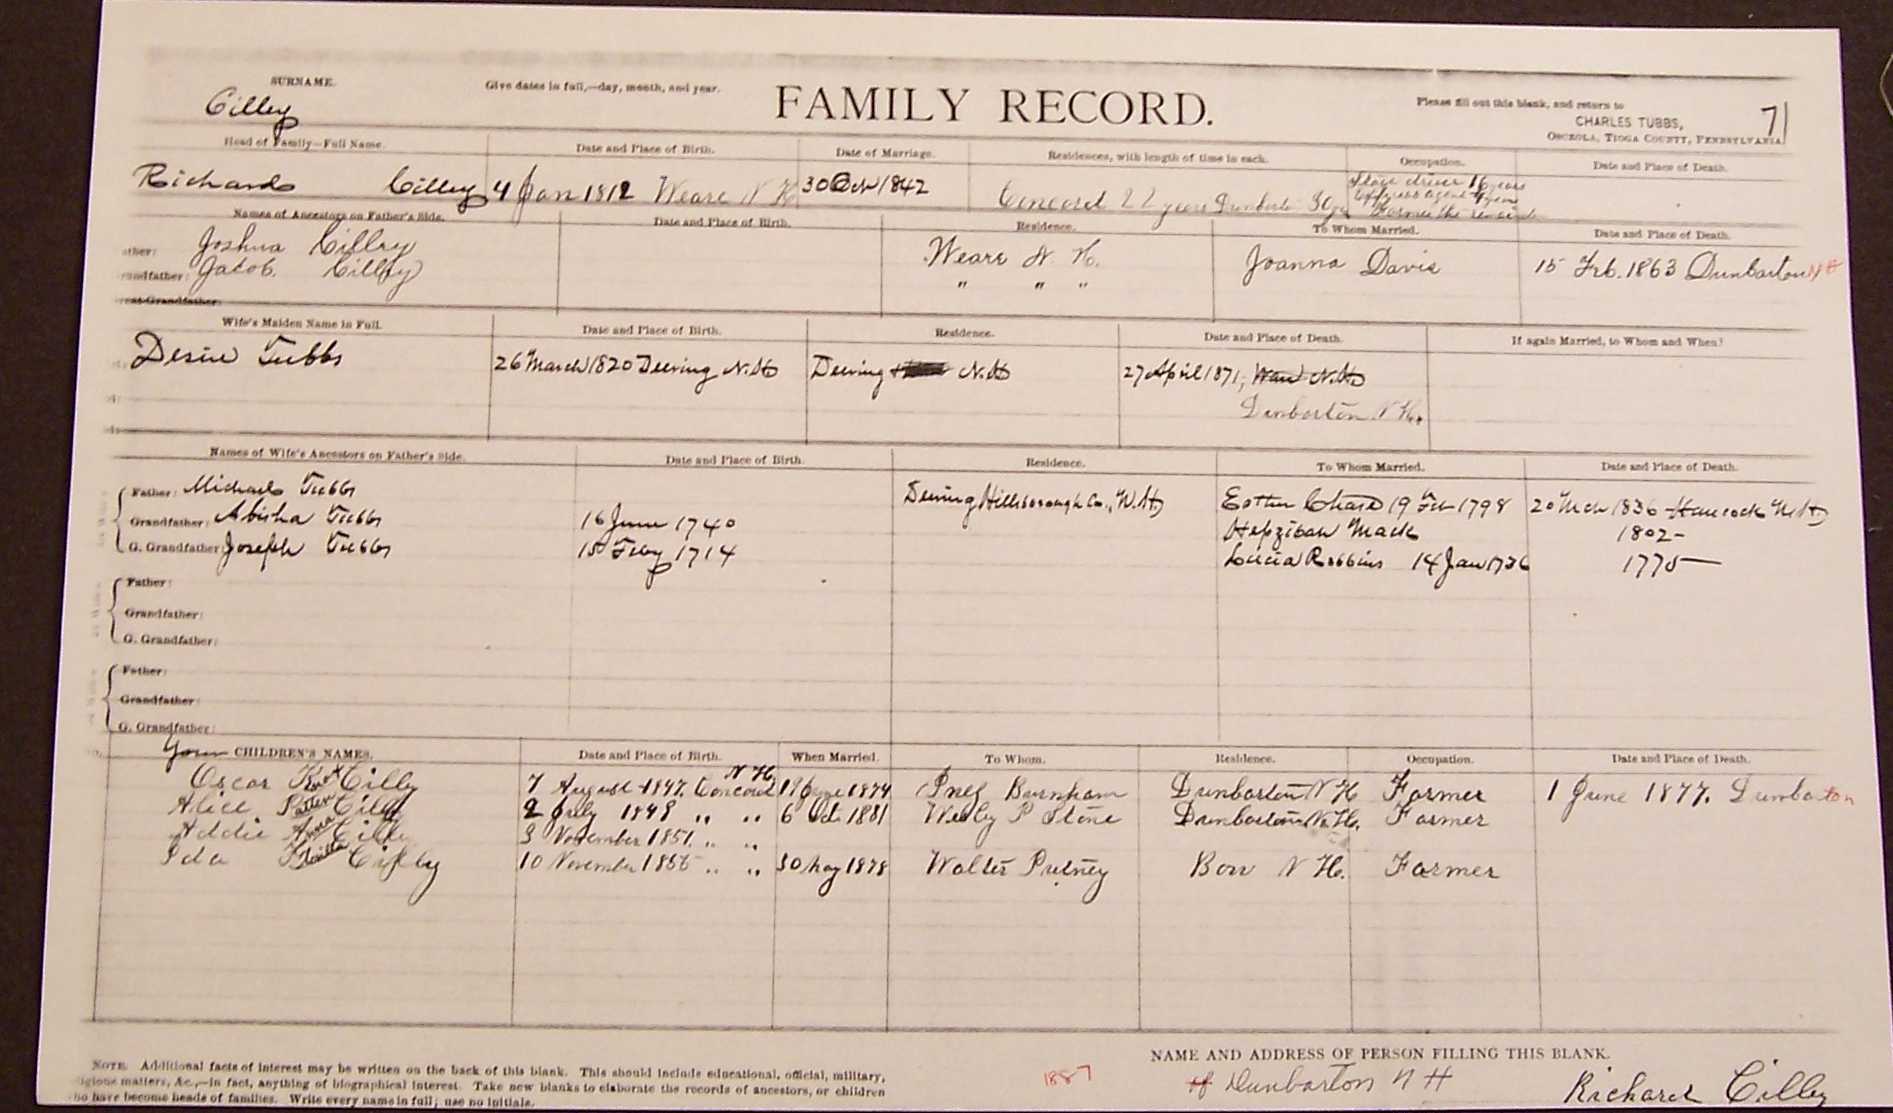 SURNAME.
Give dates in full,—day, month, and year.
FAMILY RECORD.
Please fill out this blank, and return to
CHARLES TUBBS,
OSCEOLA, TIOGA COUNTY, PENNSYLVANIA.
71
Cilley
Head of Family—Full Name. Date and Place of Birth. Date of Marriage. Residences, with length of time in each. Occupation. Date and Place of Death.
Richard Cilley 4 Jan 1812 Weare N H 30 Oct 1842 Concord 22 years Dunbarton 30 Stage driver 16 years
agent 4 years
Farmer the
Names of Ancestors on Father's Side. Date and Place of Birth. Residence. To Whom Married. Date and Place of Death.
ather: Joshua Cilley Weare N. H. Joanna Davis 15 Feb. 1863 Dunbarton NH
randfather: Jacob Cilley " " "
reat-Grandfather:
Wife's Maiden Name in Full. Date and Place of Birth. Residence. Date and Place of Death. If again Married, to Whom and When?
Desire Tubbs 26 March 1820 Deering N.H. Deering N.H. 27 April 1871, Weare N.H.
Dunbarton N H.
Names of Wife's Ancestors on Father's Side. Date and Place of Birth. Residence. To Whom Married. Date and Place of Death.
Father: Michael Tubbs Deering, Hillsborough Co., N.H. Esther Chase 19 Feb 1798 20 Mch 1836 Hancock N.H.
Grandfather: Abisha Tubbs 16 June 1740 Hepzibah Mack 1802-
G. Grandfather: Joseph Tubbs 15 Feby 1714 Lucia Robbins 14 Jan 1736 1775
Father:
Grandfather:
G. Grandfather:
Father:
Grandfather:
G. Grandfather:
Your CHILDREN'S NAMES. Date and Place of Birth. When Married. To Whom. Residence. Occupation. Date and Place of Death.
Oscar Cilley 7 August 1847 Concord N H 1874 Inez Burnham Dunbarton N H Farmer 1 June 1877. Dunbarton
Alice Patten Cilley 2 July 1849 " " 6 Oct. 1881 Wesley P Stone Dunbarton N.H. Farmer
Addie Anna Cilley 3 November 1851 " "
Ida Cilley 10 November 1855 " " 30 May 1878 Walter Putney Bow N H. Farmer
NOTE. Additional facts of interest may be written on the back of this blank. This should include educational, official, military,
igious matters, &c.,—in fact, anything of biographical interest. Take new blanks to elaborate the records of ancestors, or children
ho have become heads of families. Write every name in full; use no initials.
1887
NAME AND ADDRESS OF PERSON FILLING THIS BLANK.
of Dunbarton N H Richard Cilley